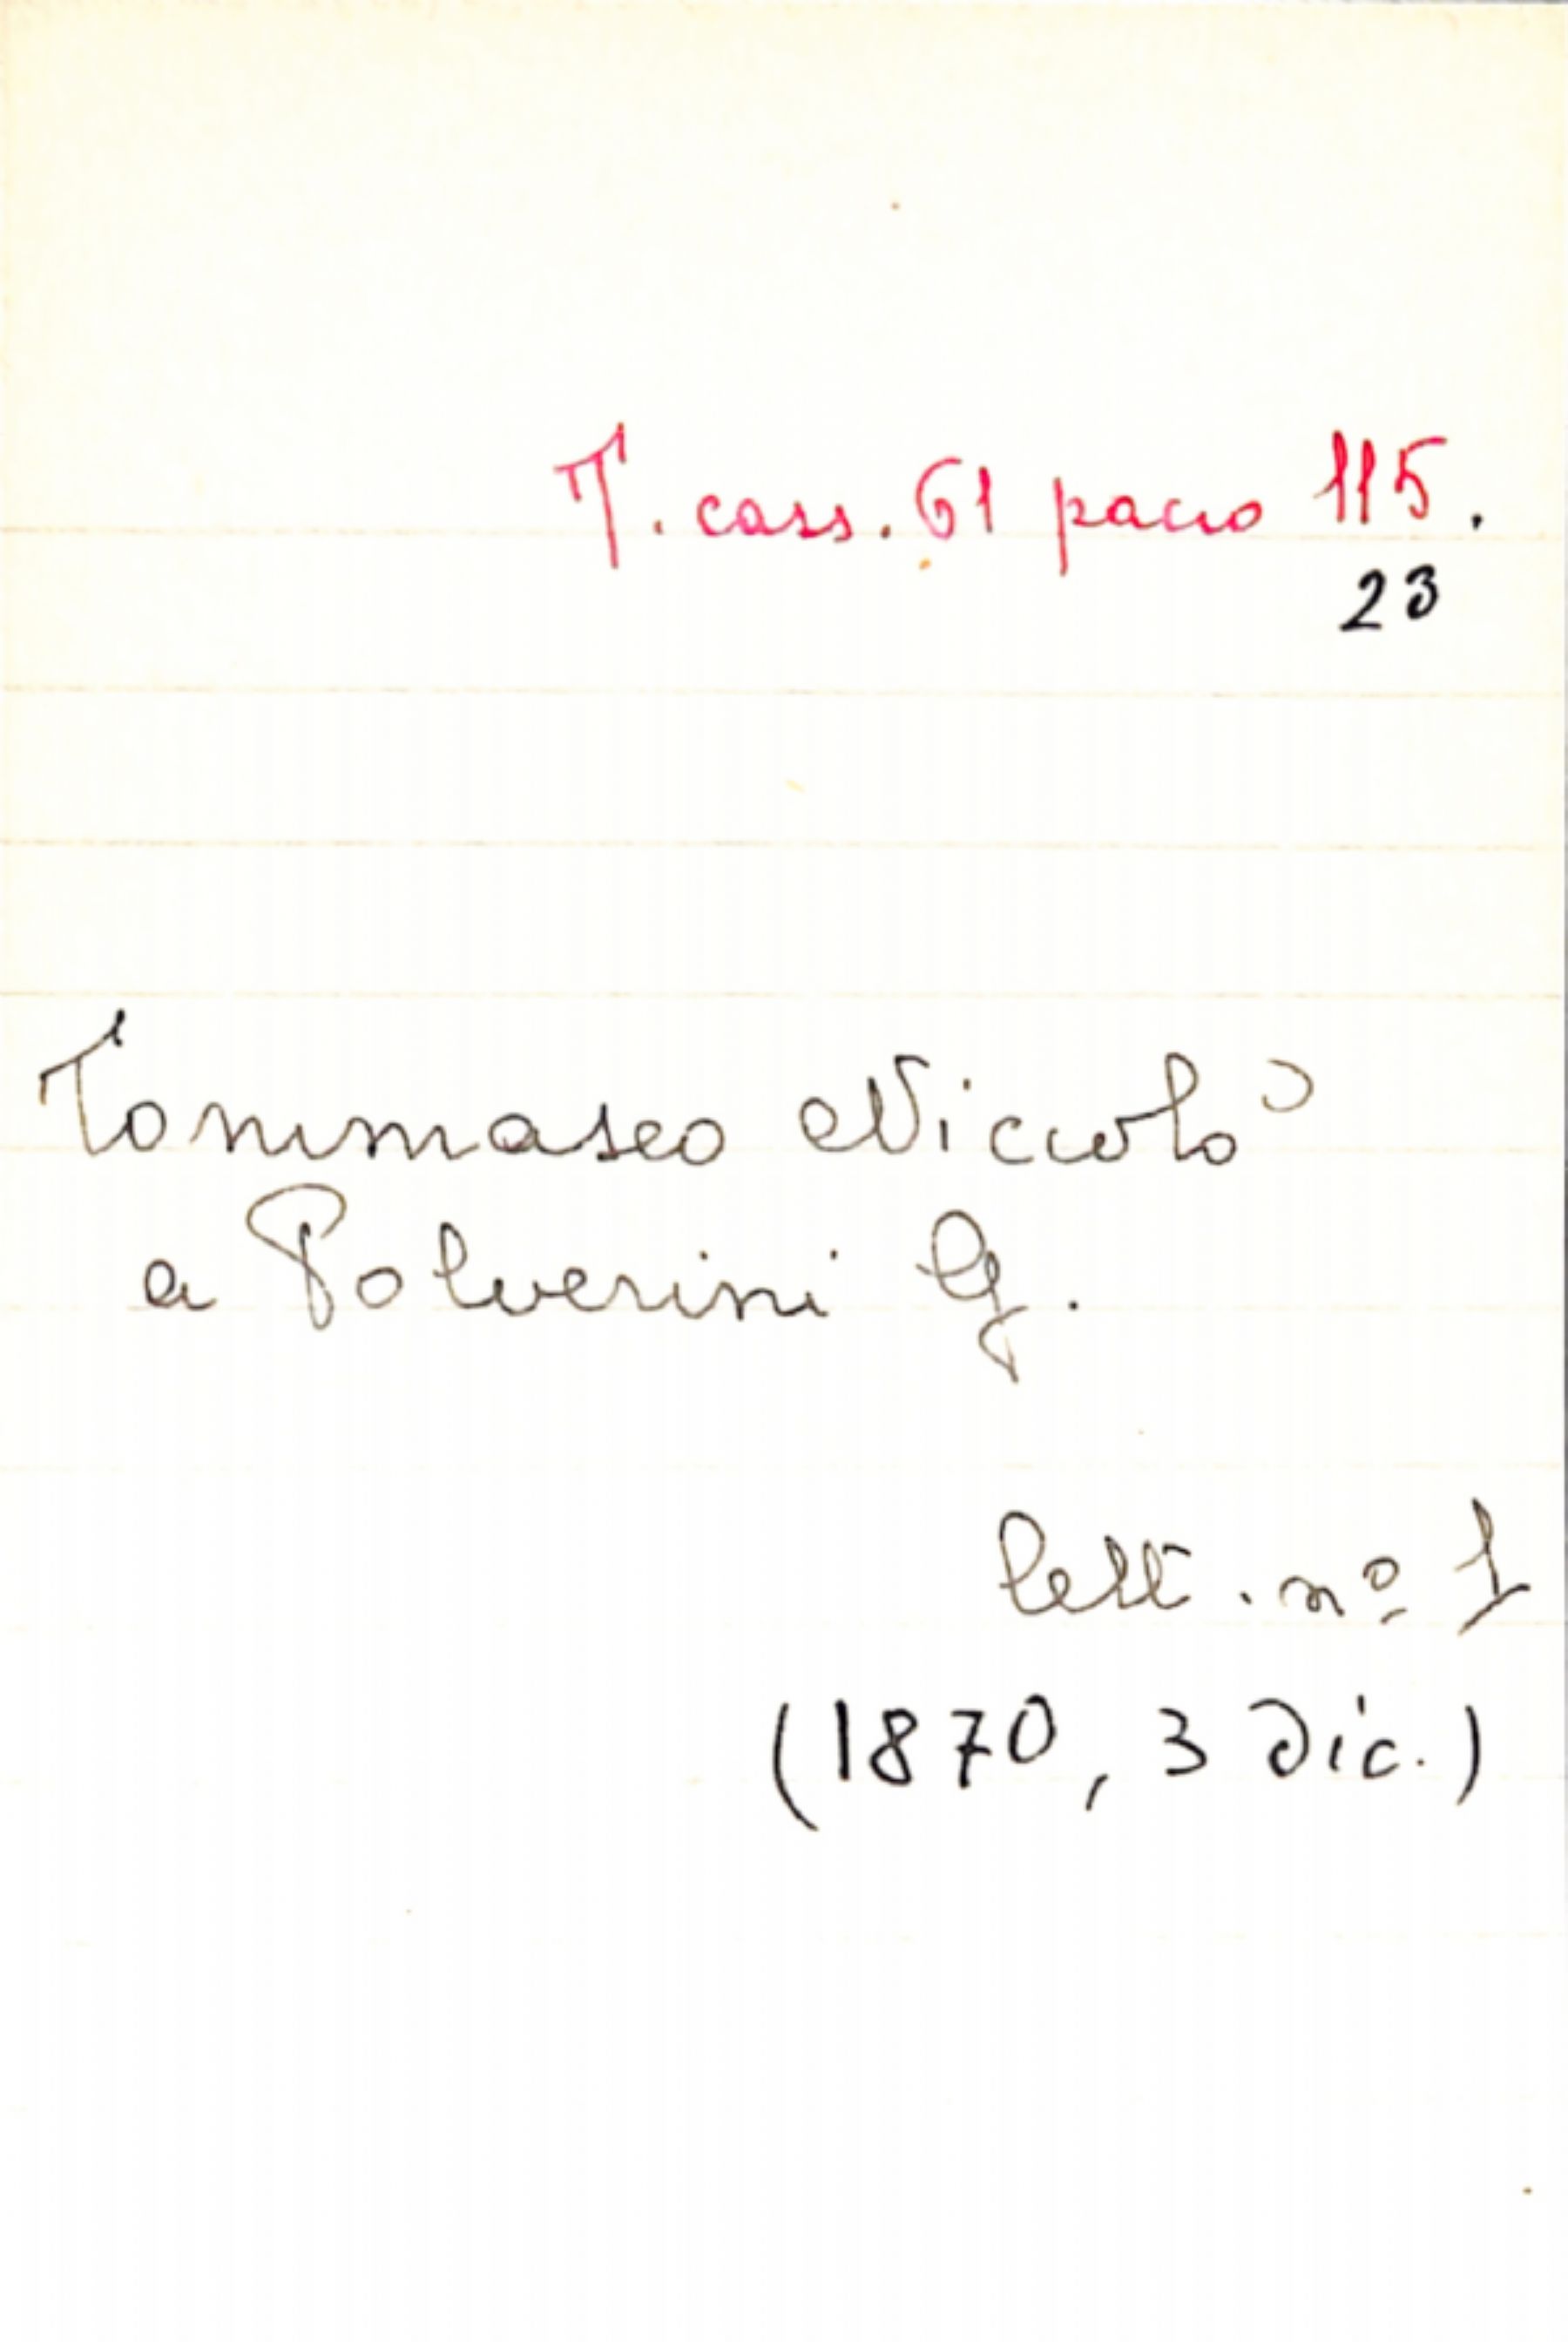 T. cass. 61 pacco 115.
23
Tommaseo Niccolò
a Polverini G.
lett. nº 1
(1870, 3 dic.)